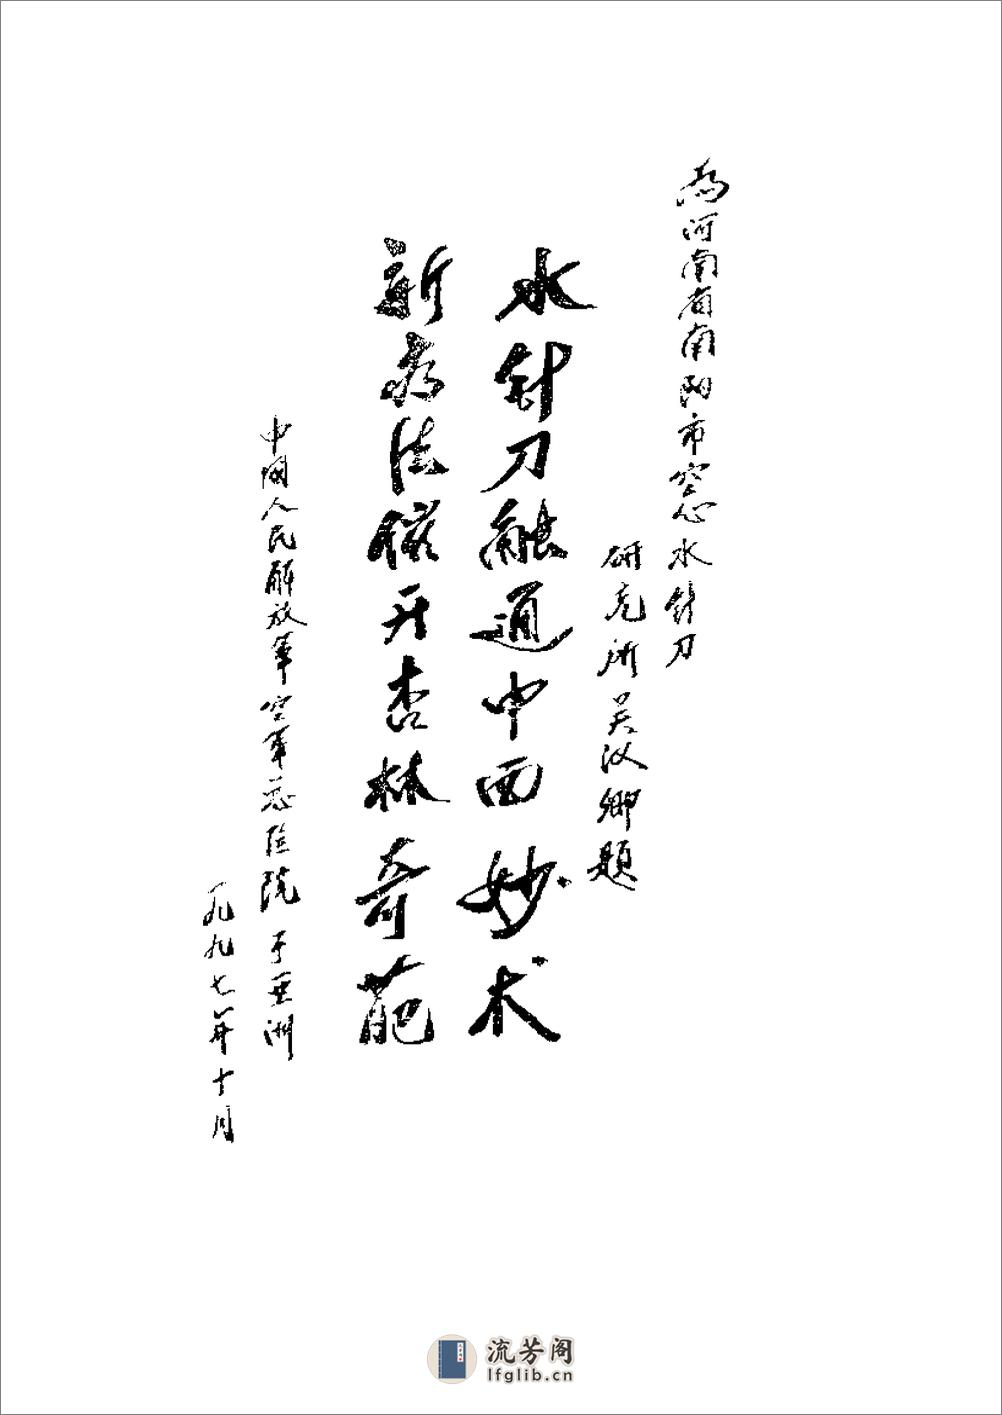 为河南省南阳市空心水针刀
研究所吴汉卿题
水针刀融通中西妙术
新为法催开杏林奇葩
中国人民解放军空军总医院 于亚洲
一九九七年十月
流芳阁
lfglib.cn